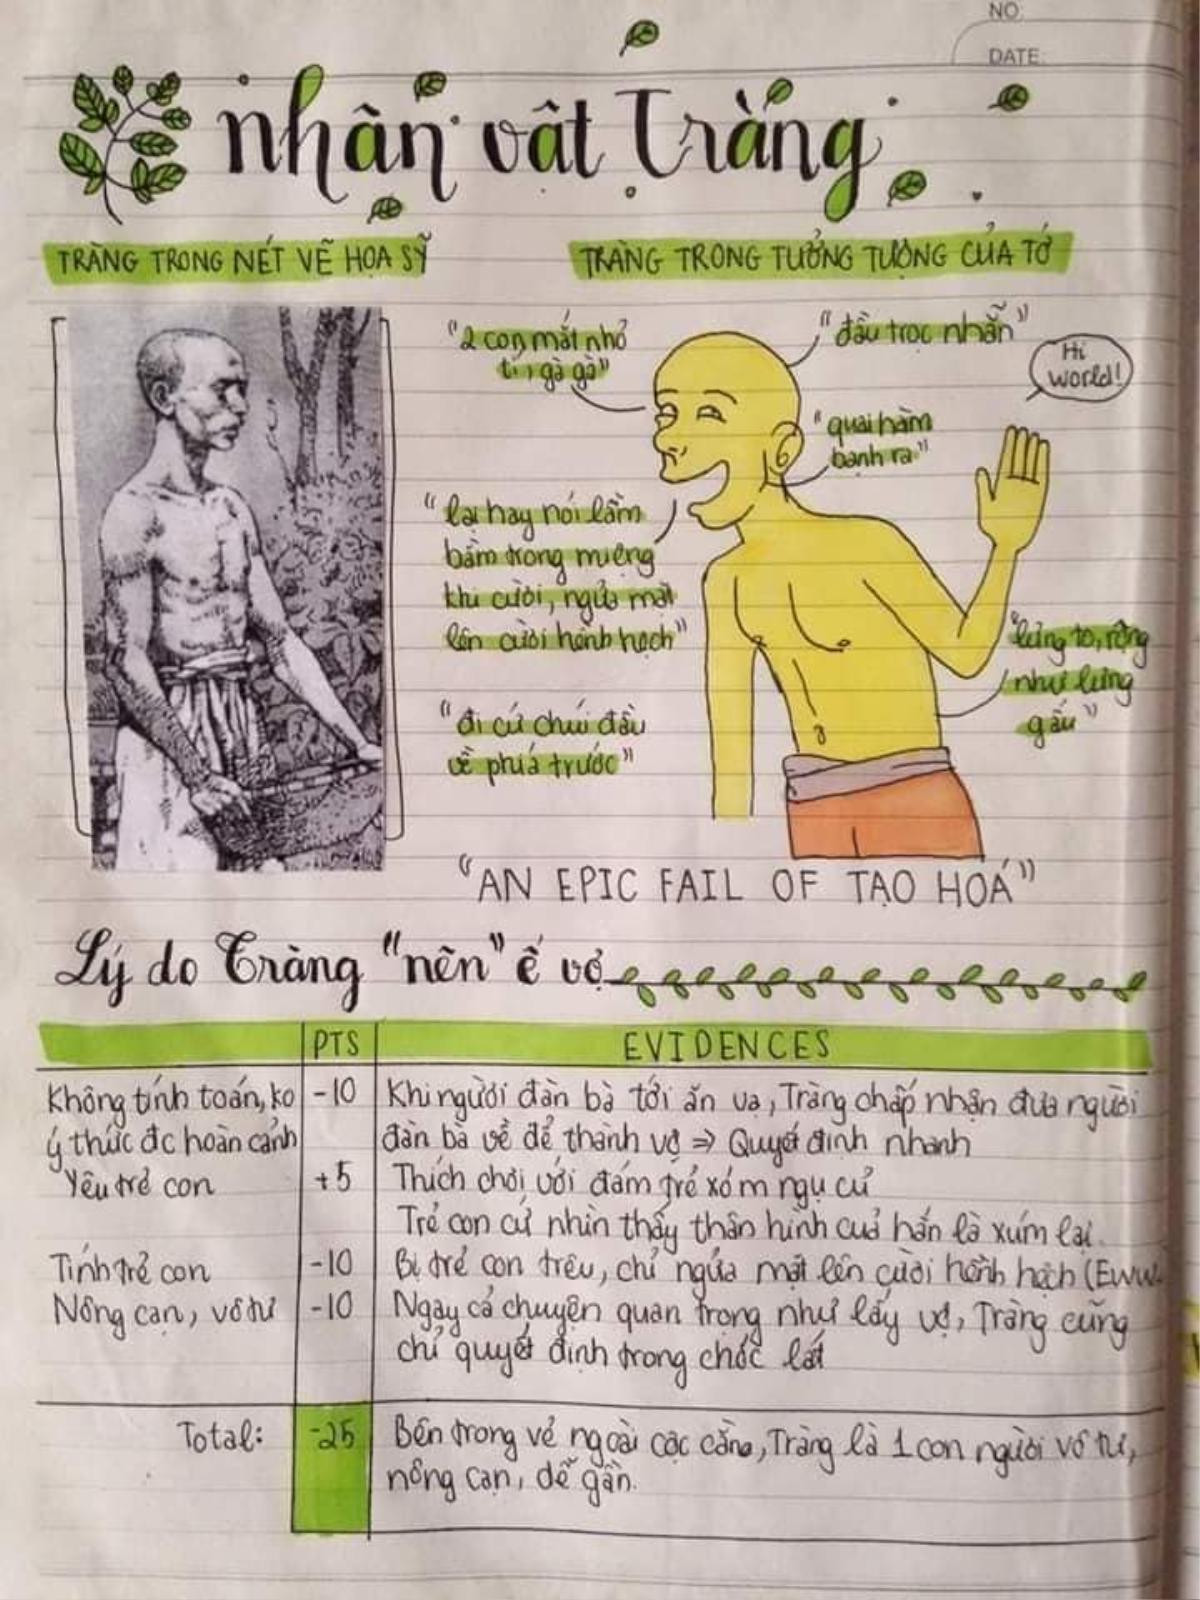 NO:
DATE:
nhân vật Tràng
TRÀNG TRONG NÉT VẼ HỌA SỸ
TRÀNG TRONG TƯỞNG TƯỢNG CỦA TỚ
"2 con mắt nhỏ
tí, gà gà"
"đầu trọc nhẵn"
Hi
World!
"quai hàm
bạnh ra"
"lại hay nói lầm
bầm trong miệng
khi cười, ngửa mặt
lên cười hềnh hệch"
"lưng to, rộng
như lưng
gấu"
"đi cứ chúi đầu
về phía trước"
"AN EPIC FAIL OF TẠO HOÁ"
Lý do Tràng "nên" ế vợ
PTS
EVIDENCES
Không tính toán, ko -10 Khi người đàn bà tới ăn vạ, Tràng chấp nhận đưa người
ý thức đc hoàn cảnh đàn bà về để thành vợ => Quyết định nhanh
Yêu trẻ con +5 Thích chơi với đám trẻ xóm ngụ cư
Trẻ con cứ nhìn thấy thân hình của hắn là xúm lại.
Tính trẻ con -10 Bị trẻ con trêu, chỉ ngửa mặt lên cười hềnh hệch (Eww
Nông cạn, vô tư -10 Ngay cả chuyện quan trọng như lấy vợ, Tràng cũng
chỉ quyết định trong chốc lát
Total: -25 Bên trong vẻ ngoài cọc cằn, Tràng là 1 con người vô tư,
nông cạn, dễ gần.